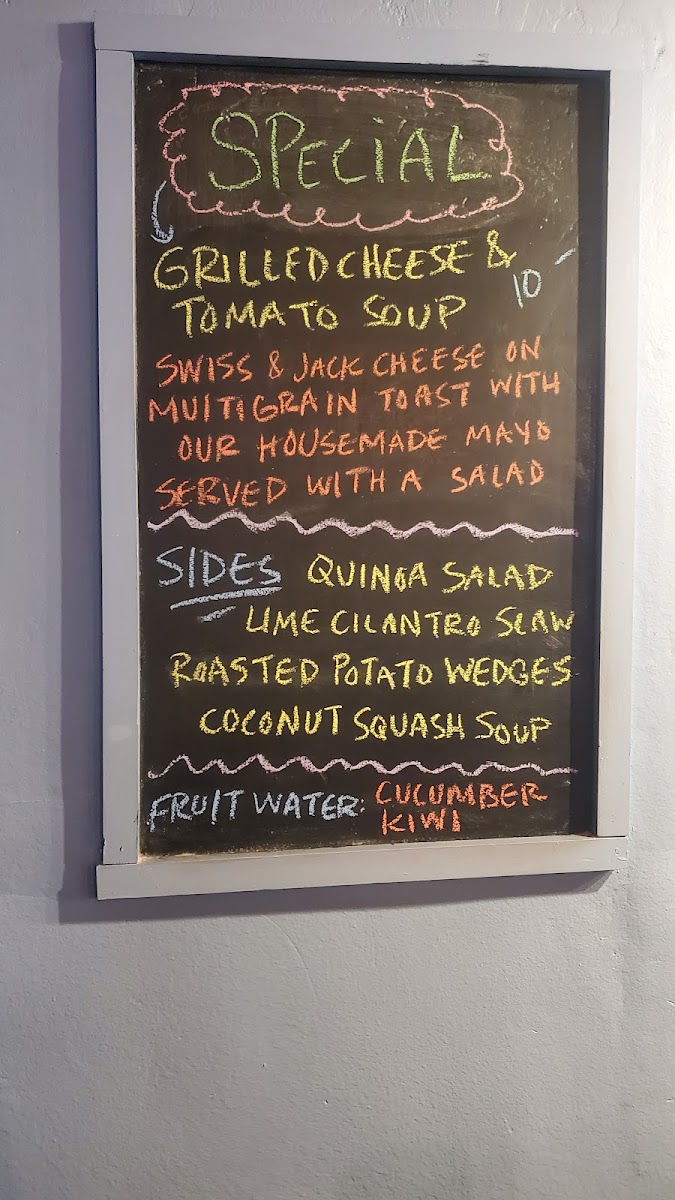 SPECIAL
GRILLED CHEESE &
10 -
TOMATO SOUP
SWISS & JACK CHEESE ON
MULTIGRAIN TOAST WITH
OUR HOUSEMADE MAYO
SERVED WITH A SALAD
SIDES QUINOA SALAD
LIME CILANTRO SLAW
ROASTED POTATO WEDGES
COCONUT SQUASH SOUP
FRUIT WATER: CUCUMBER
KIWI